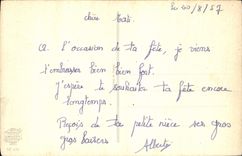 Le 20/8/57
chère tati.
A l'occasion de ta fête, je viens
t'embrasser bien bien fort.
J'espère te souhaiter ta fête encore
longtemps.
Reçois de ta petite nièce ses gros
gros baisers